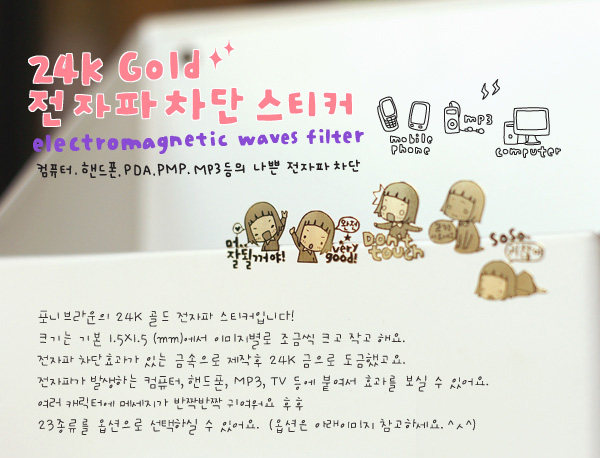 24K Gold
전자파차단 스티커
electromagnetic waves filter
컴퓨터. 핸드폰. PDA. PMP. MP3등의 나쁜 전자파 차단
mobile phone
mp3
computer
머... 잘될꺼야!
완전 very good!
DON'T touch
soso
포니브라운의 24K 골드 전자파 스티커입니다!
크기는 기본 1.5X1.5 (mm)에서 이미지별로 조금씩 크고 작고 해요.
전자파 차단효과가 있는 금속으로 제작후 24K 금으로 도금했고요.
전자파가 발생하는 컴퓨터, 핸드폰, MP3, TV 등에 붙여서 효과를 보실 수 있어요.
여러 캐릭터에 메세지가 반짝반짝 귀여워요 후후
23종류를 옵션으로 선택하실 수 있어요. (옵션은 아래이미지 참고하세요.^^)